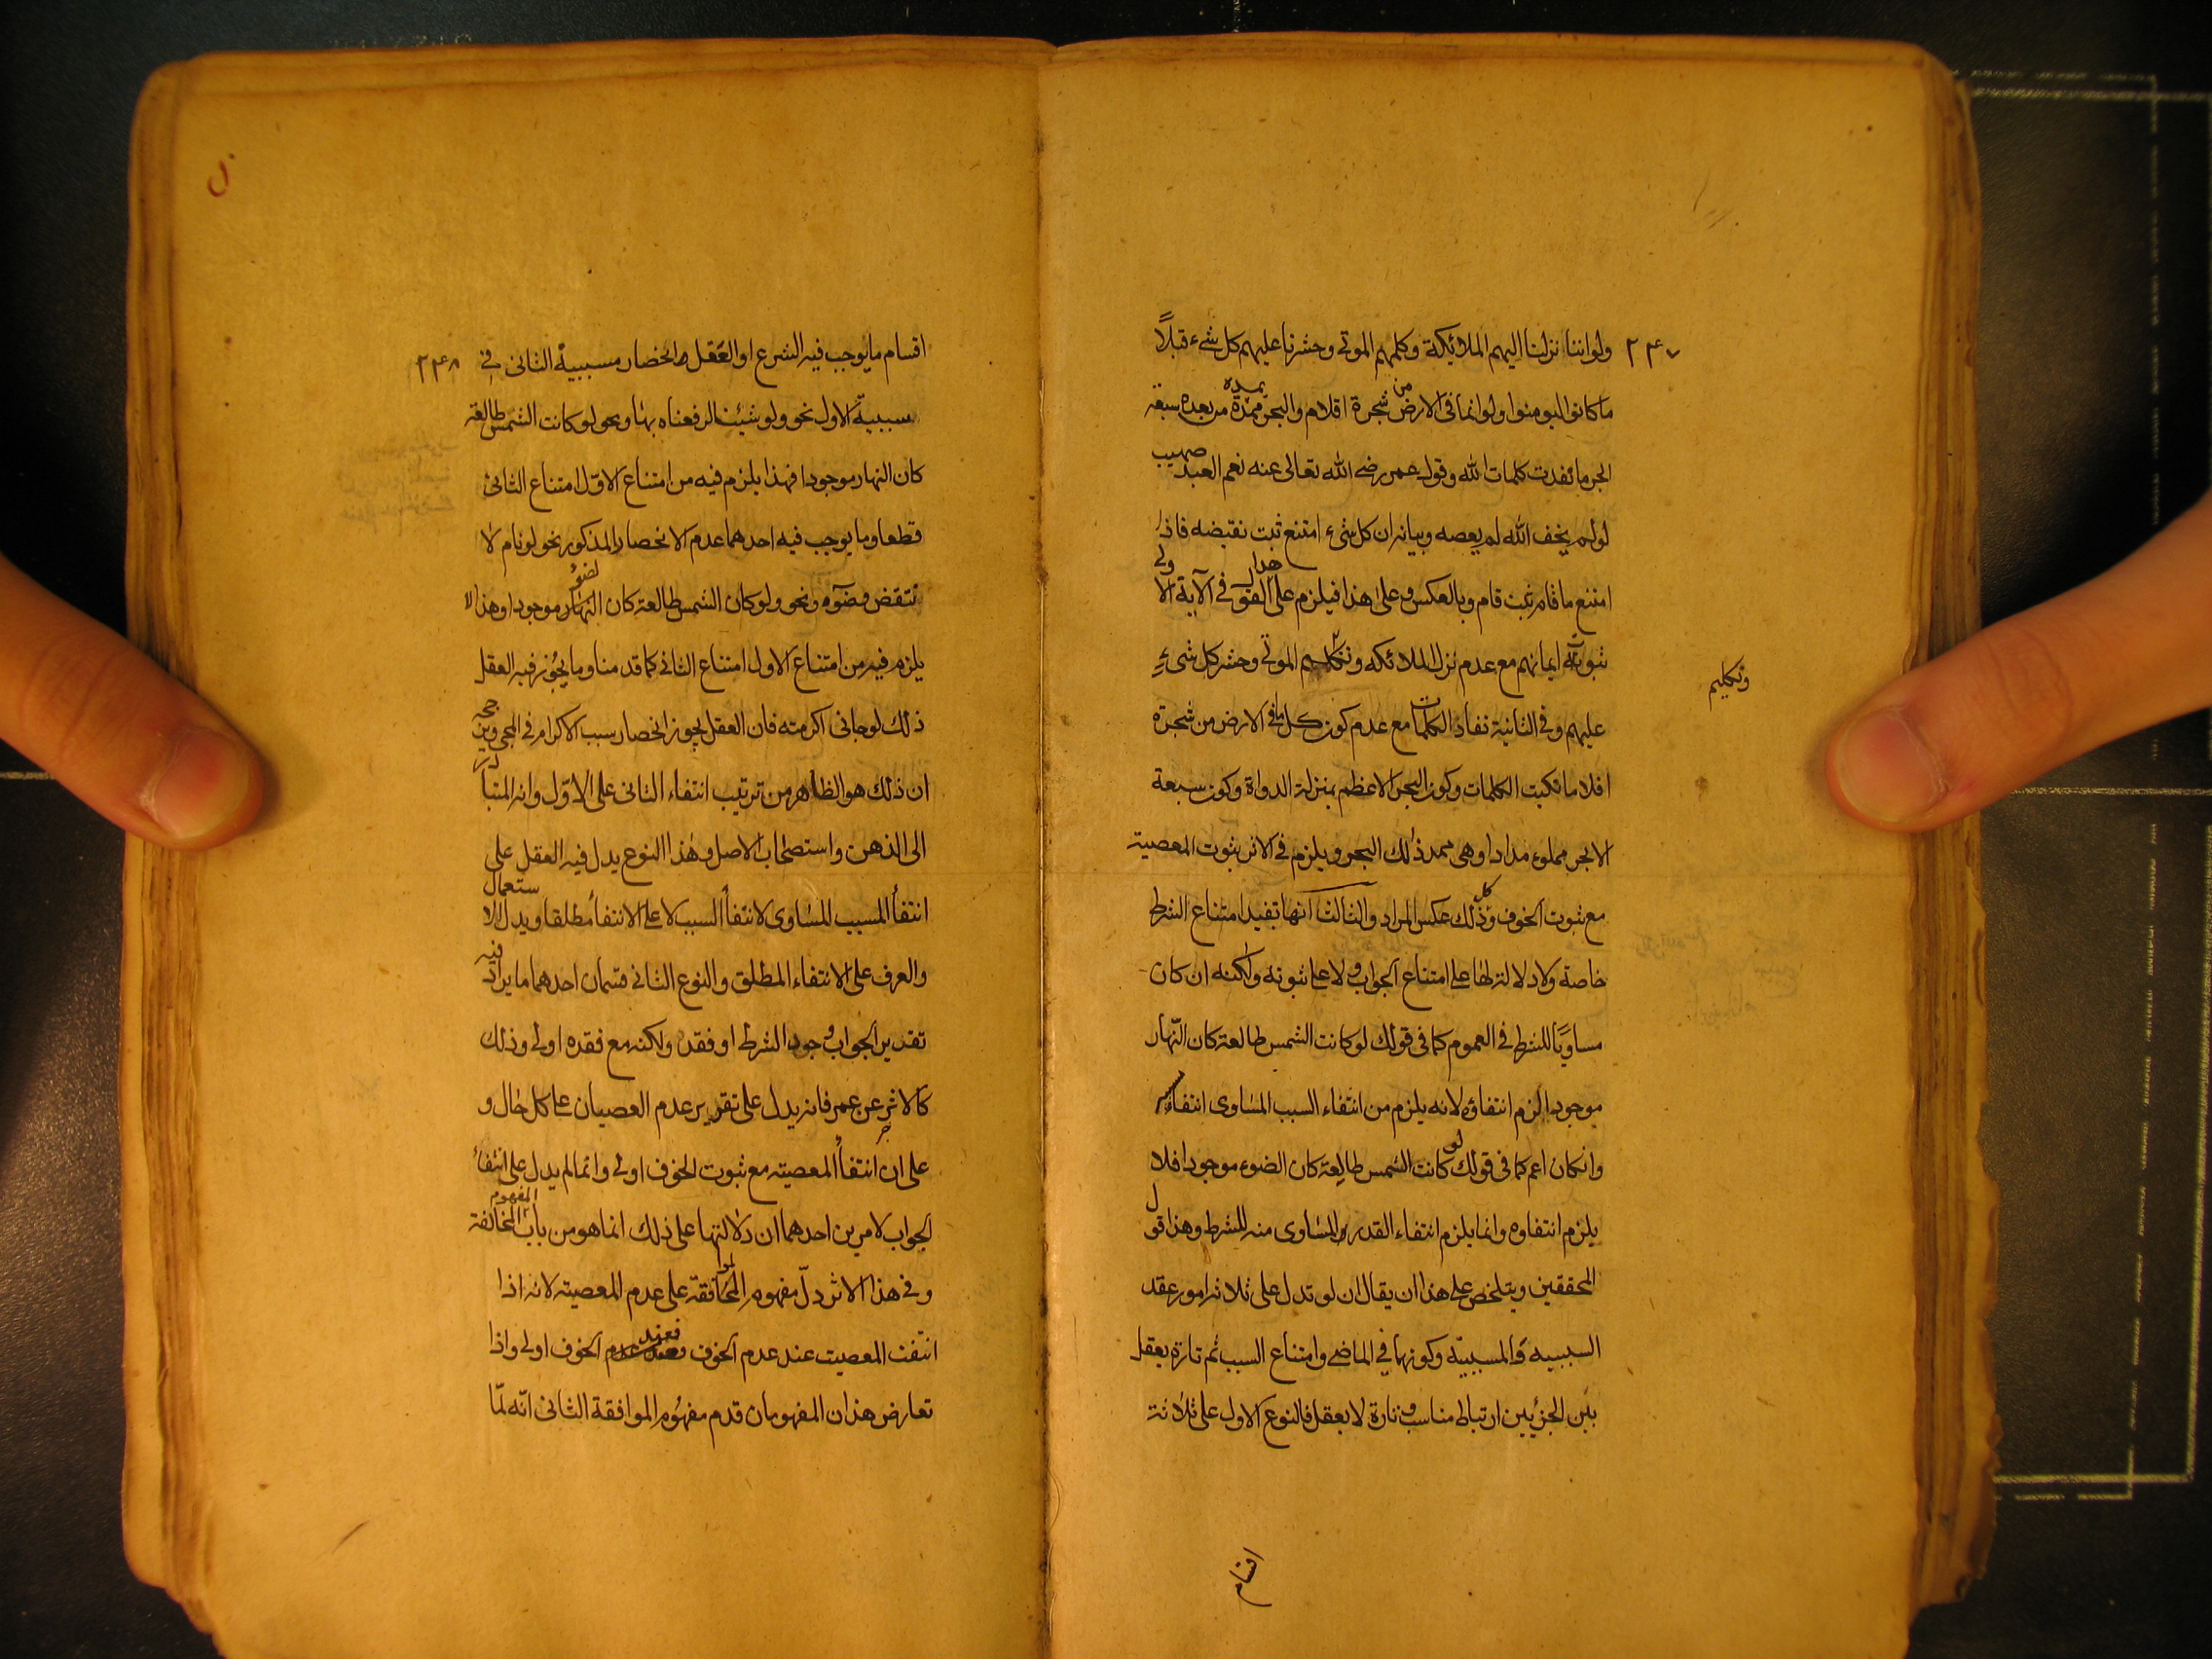 ٢٤٧ ولو اننا نزلنا اليهم الملائيكة وكلمهم الموتى وحشرنا عليهم كل شيء قبلاً
ما كانوا ليومنوا ولو انما فى الارض من شجرة اقلام والبحر يمده من بعده سبعة
ابحر ما نفدت كلمات الله وقول عمر رضى الله تعالى عنه نعم العبد صهيب
لو لم يخف الله لم يعصه وبيانه ان كل شىء امتنع ثبت نقيضه فاذا
امتنع ما قام ثبت قام وبالعكس وعلى هذا فيلزم على هذا القول فى الآية الاولى
ثبوت ايمانهم مع عدم نزل الملائكه وتكليم الموتى وحشر كل شىء
وتكليم
عليهم وفى الثانية نفاد الكلمات مع عدم كون كل ما فى الارض من شجرة
اقلاما تكتب الكلمات وكون البحر الاعظم بمنزلة الدواة وكون سبعة
الابحر مملوء مدادا وهى تمد ذلك البحر ويلزم فى الاثر ثبوت المعصية
مع ثبوت الخوف وكل ذلك عكس المراد والثالث انها تفيد امتناع الشرط
خاصة ولا دلالة لها على امتناع الجواب ولا على ثبوته ولكنه ان كان
مساويًا للشرط فى العموم كما فى قولك لو كانت الشمس طالعة كان النّهار
موجودا لزم انتفاؤه لانه يلزم من انتفاء السبب المساوى انتفاء
وان كان اعم كما فى قولك لو كانت الشمس طالعة كان الضوء موجودا فلا
يلزم انتفاوه وانما يلزم انتفاء القدر المساوى منه للشرط وهذا قول
المحققين ويتلخص على هذا ان يقال ان لو تدل على ثلاثه امور عقد
السببيه والمسببيّه وكونها فى الماضى وامتناع السبب ثم تارة يعقل
بين الجزئين ارتباط مناسب وتارة لا يعقل فالنوع الاول على ثلاثة
اقسام
اقسام ما يوجب فيه الشرع او العقل انحصار مسببية الثانى فى ٢٤٨
سببية الاول نحو ولو شئنا لرفعناه بها ونحو لو كانت الشمس طالعة
كان النهار موجودا فهذا يلزم فيه من امتناع الاوّل امتناع الثانى
قطعا وما يوجب فيه احدهما عدم الانحصار المذكور نحو لو نام لا
نتقض وضوؤه ونحو ولو كان الشمس طالعة كان الضوء موجودا وهذا لا
يلزم فيه من امتناع الاول امتناع الثانى كما قد منا وما يجُوز فيه العقل
ذلك لو جانى اكرمته فان العقل يجوز انحصار سبب الاكرام فى المجى ويرجحه
ان ذلك هو الظاهر من ترتيب انتفاء الثانى على الاوّل وانه المتبادر
الى الذهن واستصحاب الاصل وهذا النوع يدل فيه العقل على
انتفأ المسبب المساوى لانتفأ السبب لا على الانتفأ مطلقا ويدل الاستعمال
والعرف على الانتفاء المطلق والنوع الثانى قسمان احدهما ما يراد فيه
تقدير الجواب وجود الشرط او فقد ولكنه مع فقده اولى وذلك
كالاثر عن عمر فانه يدل على تقرير عدم العصيان على كل حال و
على ان انتفأ المعصيته مع ثبوت الخوف اولى وانما لم يدل على انتفأ
الجواب لامرين احدهما ان دلالتها على ذلك انما هو من باب المفهوم المخالفة
وفى هذا الاثر دلّ مفهوم الموافقة على عدم المعصيته لانه اذا
انتفت المعصيت عند عدم الخوف فعند الخوف اولى واذا
تعارض هذان المفهومان قدم مفهُوم الموافقة الثانى انّه لمّا